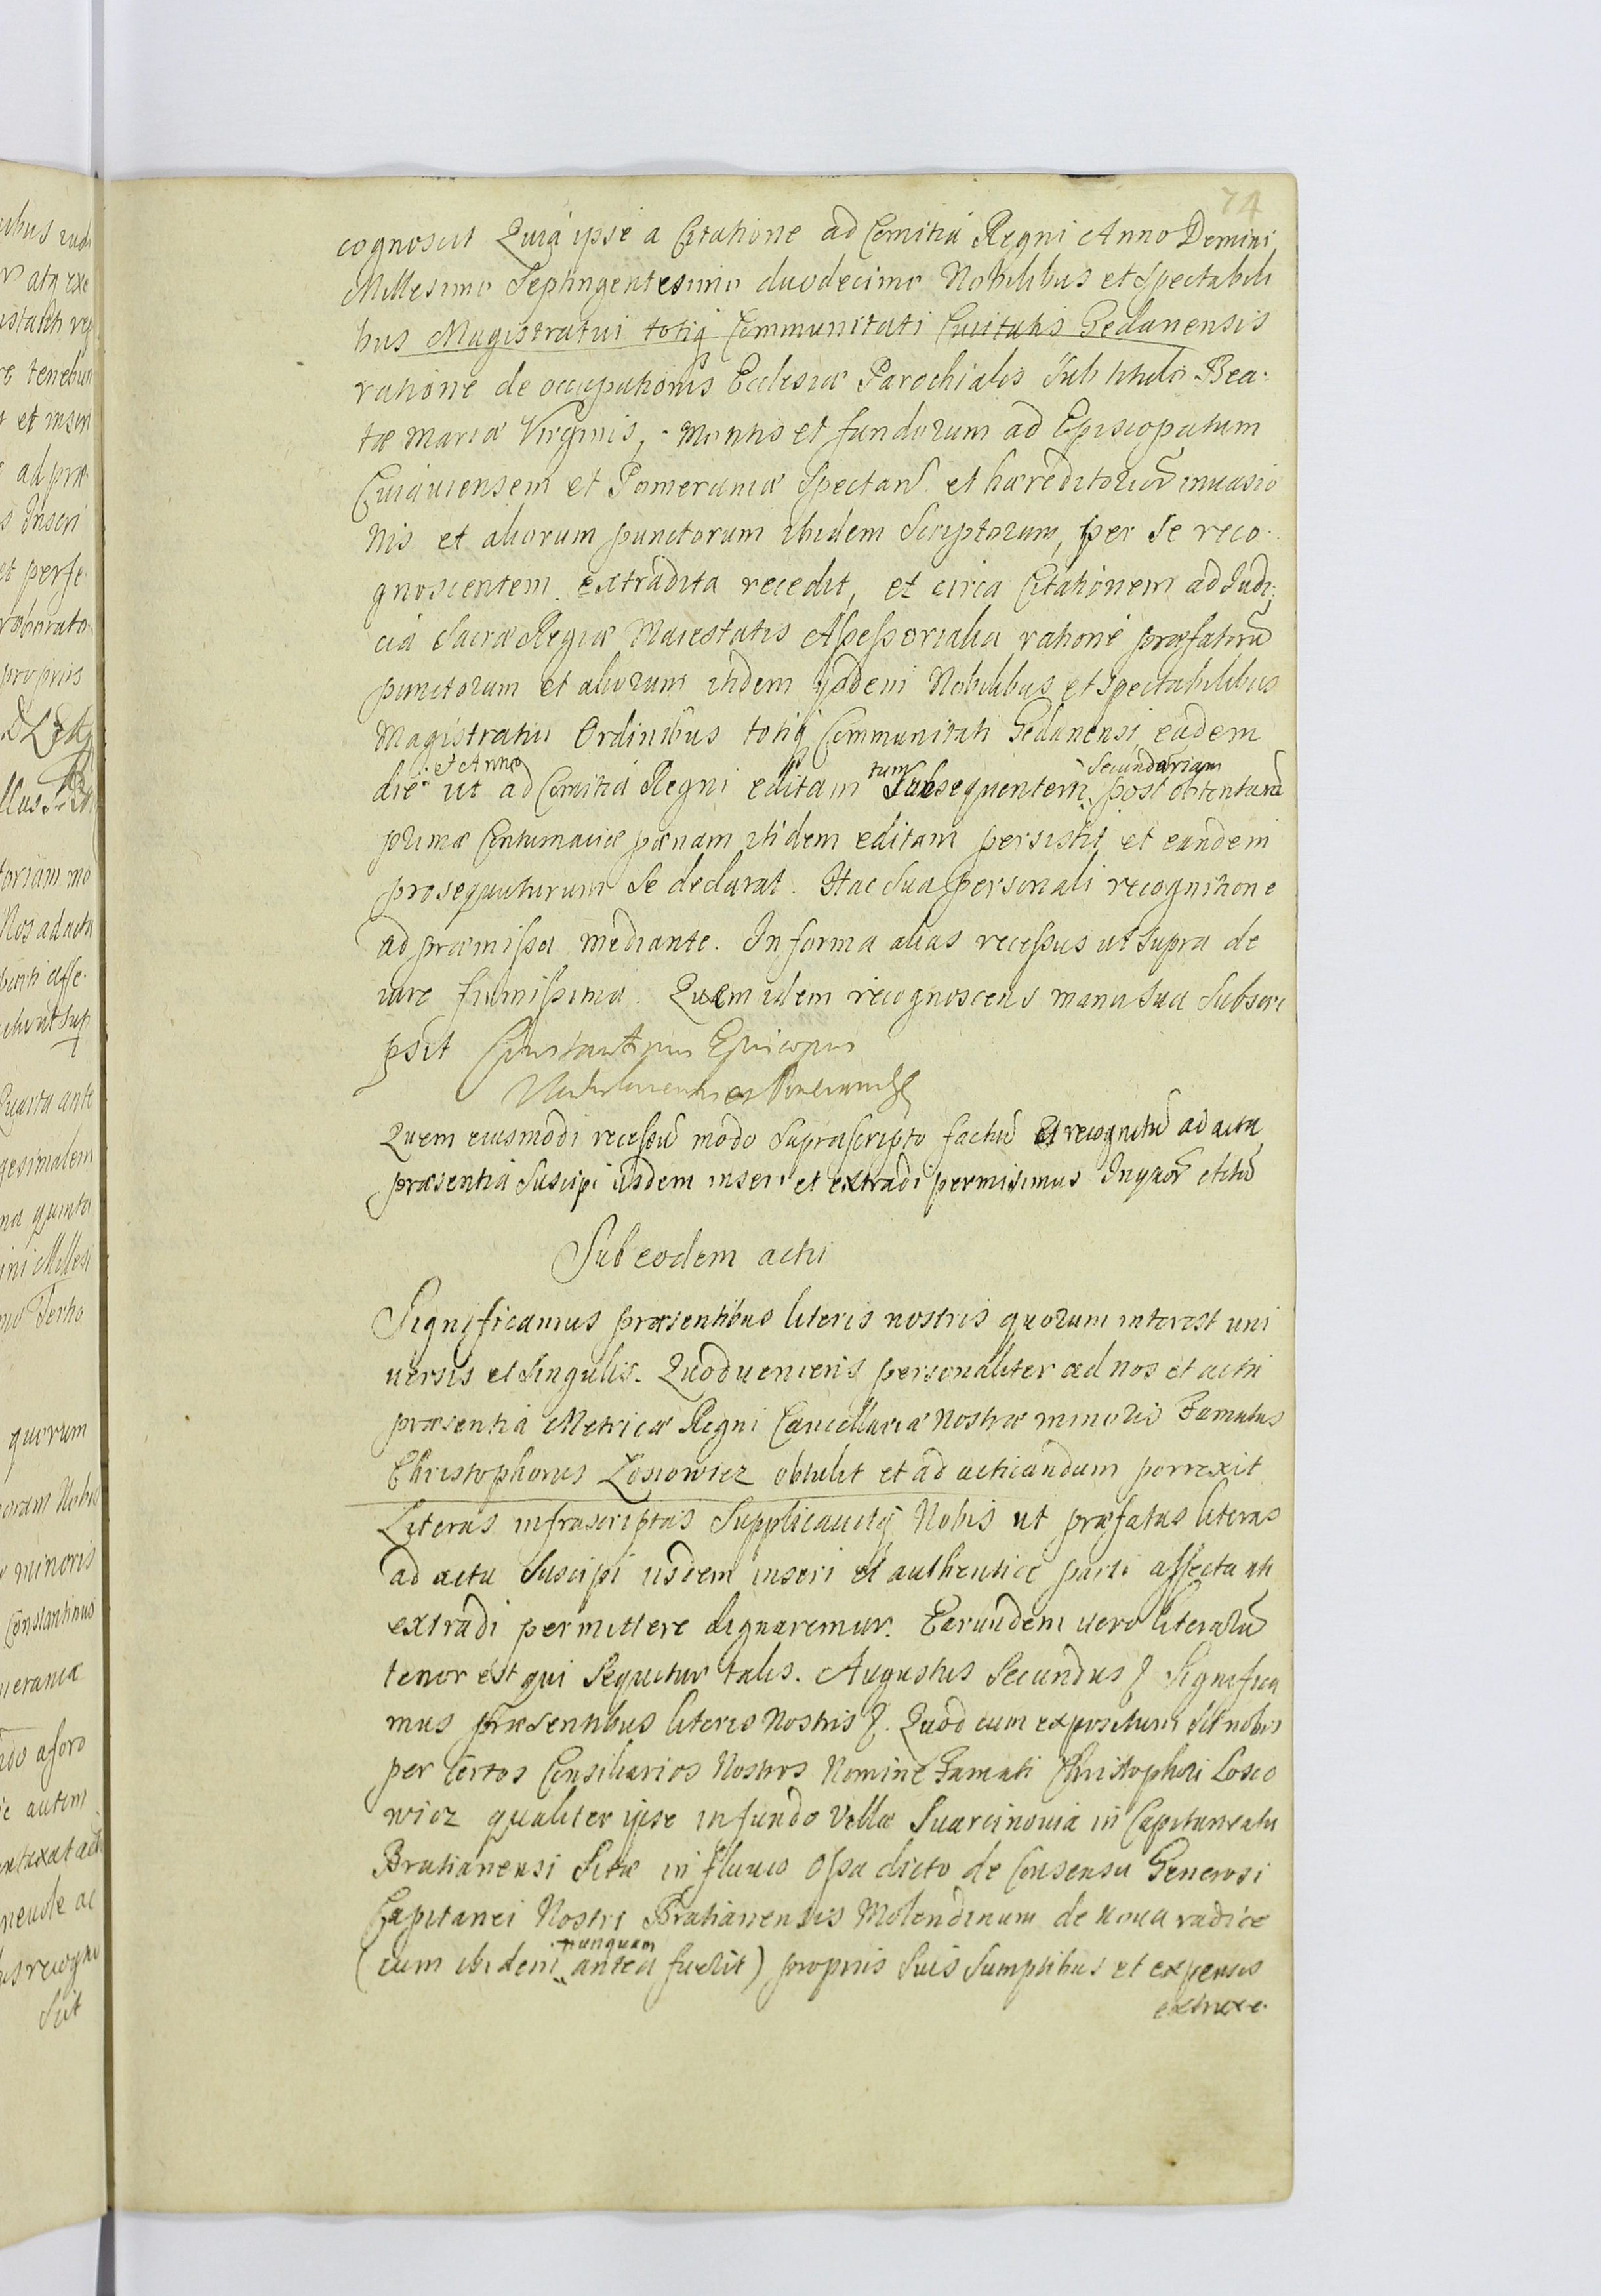 74
cognoscit Quia ipse a Citatione ad Comitia Regni Anno Domini
Millesimo Septingentesimo duodecimo Nobilibus et Spectabili
bus Magistratui totiq Communitati Civitatis Gedanensis
ratione de occupationis Ecclesiæ Parochialis sub titulo Bea-
tæ Mariæ Virginis, Montis et fundorum ad Episcopatum
Cuiauiensem et Pomeraniæ Spectan. et hæreditoriũ inuasio
nis et aliorum punctorum ibidem Scriptorum, per se reco-
gnoscentem extradita recedit, et circa Citationem ad Judi,
cia Sacræ Regiæ Maiestatis Assessorialia ratione præfatorũ
punctorum et aliorum itidem ijsdem Nobilibus et Spectabilibus
Magistratui Ordinibus totiq Communitati Gedanensi eadem
die et Anno ut ad Comitia Regni editam tum Subsequentem Secundariam post obtentam
primæ Contumaciæ pœnam itidem editam persistit et eandem
prosequuturum se declarat. Hac sua personali recognitione
ad præmissa mediante. In forma alias recessus ut supra de
iure firmissima. Quem idem recognoscens manu sua Subscri
psit Constantinus Episcopus
Vladislaviensis et Pomeraniæ
Quem eiusmodi recessũ modo Suprascripto factũ et recognitũ ad acta
præsentia Suscipi iisdem inseri et extradi permisimus Inquor etitũ
Sub eodem actu
Significamus præsentibus literis nostris quorum interest uni
uersis et Singulis. Quod ueniens personaliter ad nos et acta
præsentia Metricæ Regni Cancellariæ Nostræ minoris Famatus
Christophorus Losiowicz obtulit et ad acticandum porrexit
Literas infrascriptas Supplicavitq Nobis ut præfatas literas
ad acta Suscipi iisdem inseri et authentice parti affectanti
extradi permittere dignaremur. Earundem uero literarũ
tenor est qui Sequitur talis. Augustus Secundus Significa
mus præsentibus literis Nostris. Quod cum expositum sit nobis
per certos Consiliarios Nostros Nomine Famati Christophori Losio
wicz qualiter ipse in fundo Villæ Suarcinouia in Capitaneatu
Bratianensi Sitæ in fluuio Ossa dicto de Consensu Generosi
Capitanei Nostri Bratianensis Molendinum de noua radice
(cum ibidem nunquam antea fuerit) proprijs suis Sumptibus et expensis
extruxe.